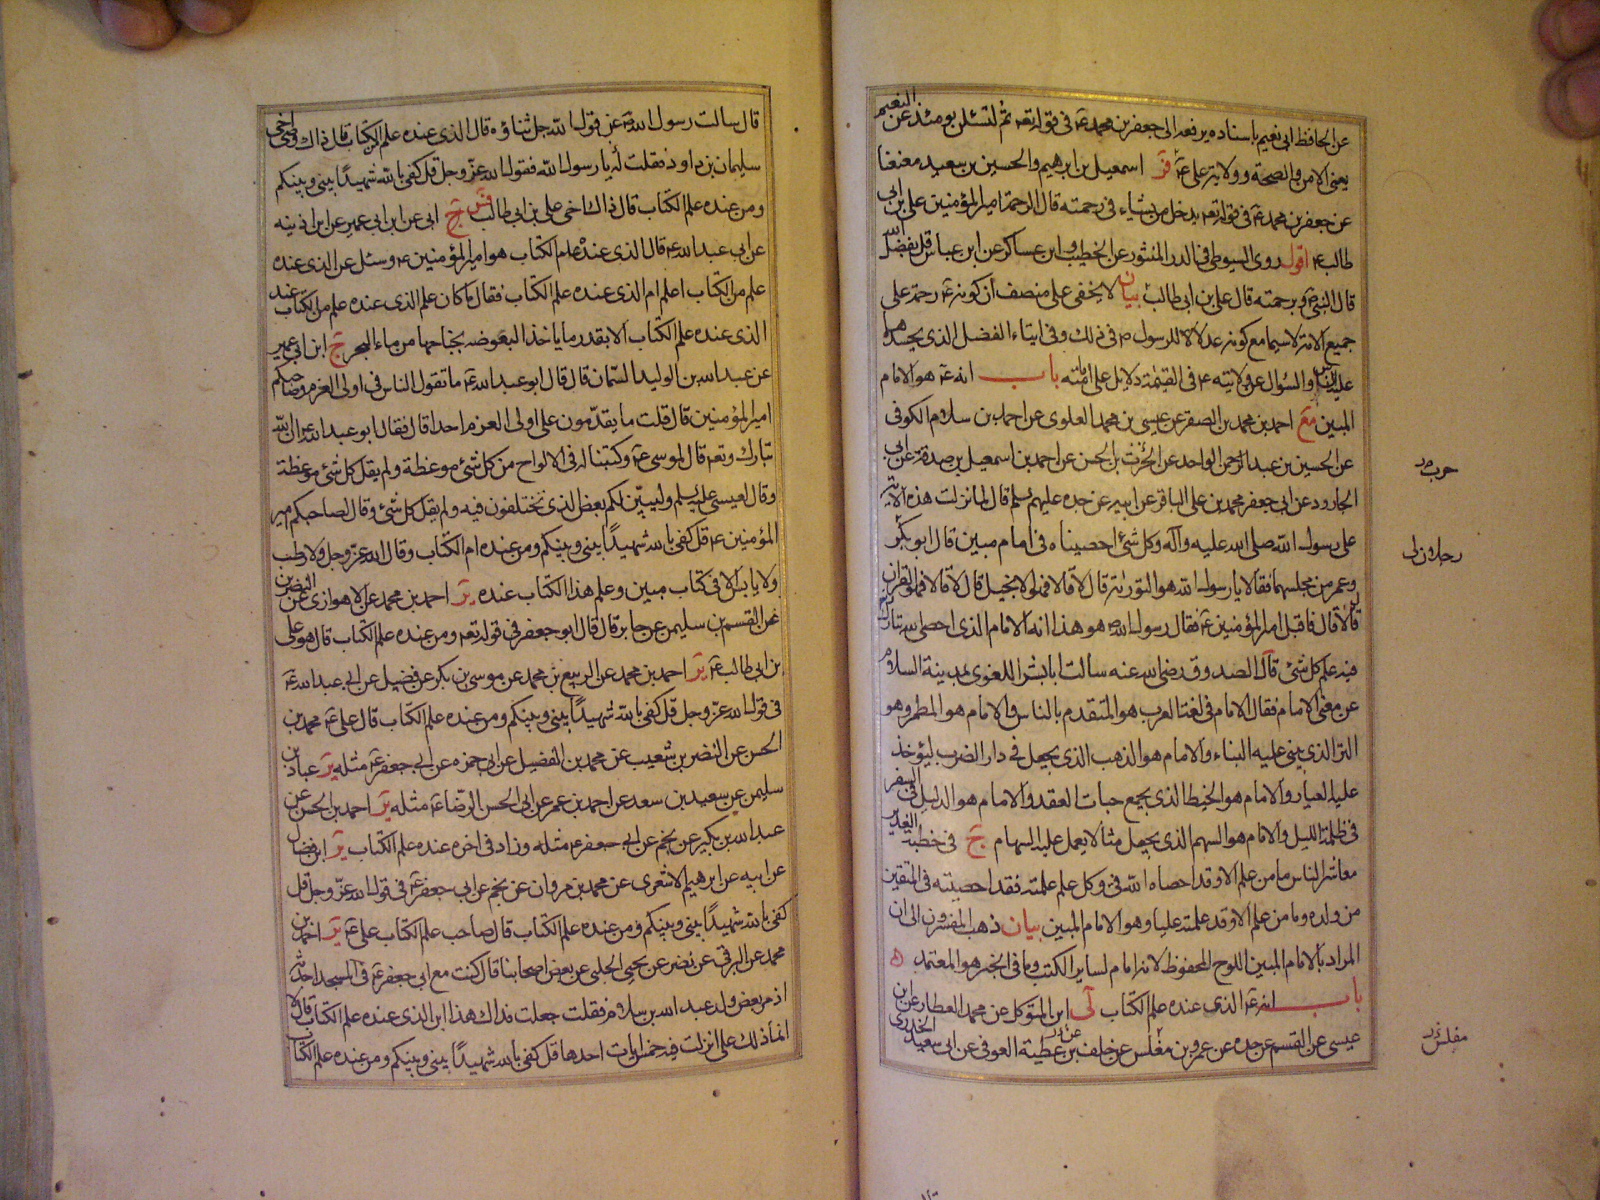 عن الحافظ ابی نعیم باسناده یرفعه الی جعفر بن محمد ع فی قوله تعه ثم لتسئلن یومئذ عن النعیم
یعنی الامن والصحة و ولایة علی ع فر اسمعیل بن ابرهیم والحسین بن سعید معنعنا
عن جعفر بن محمد ع فی قوله تعه یدخل من یشاء فی رحمته قال الرحمة امیر المؤمنین علی بن ابی
طالب ع اقول روی السیوطی فی الدر المنثور عن الخطیب وابن عساکر عن ابن عباس قل بفضل الله
قال النبی ص وبرحمته قال علی بن ابی طالب بیان لا یخفی علی منصف ان کونه ع رحمة علی
جمیع الامة لا سیما مع کونه عدلا للرسول ص فی ذلك وفی ایتاء الفضل الذی یحسدهما
علیه الناس والسؤال عن ولایته ع فی القیمة دلایل علی امامته باب انه ع هو الامام
المبین مع احمد بن محمد بن الصقر عن عیسی بن محمد العلوی عن احمد بن سلام الکوفی
عن الحسین بن عبد الواحد عن الحرث بن الحسن عن احمد بن اسمعیل بن صدقة عن ابی
الجارود عن ابی جعفر محمد بن علی الباقر عن ابیه عن جده علیهم السلم قال لما نزلت هذه الایة
علی رسول الله صلی الله علیه وآله وکل شیٔ احصیناه فی امام مبین قام ابو بکر
وعمر من مجلسهما فقالا یا رسول الله هو التوریة قال لا قالا فهو الانجیل قال لا قالا فهو القران
قال لا قال فاقبل امیر المؤمنین ع فقال رسول الله ص هو هذا انه الامام الذی احصی الله تبارك
فیه علم کل شیٔ قال الصدوق رضی الله عنه سألت ابا بشر اللغوی بمدینة السلام
عن معنی الامام فقال الامام فی لغة العرب هو المتقدم بالناس والامام هو المطمر وهو
التر الذی یبنی علیه البناء والامام هو الذهب الذی یجعل فی دار الضرب لیؤخذ
علیه العیار والامام هو الخیط الذی یجمع حبات العقد والامام هو الدلیل فی السفر
فی ظلمة اللیل والامام هو السهم الذی یجعل مثالا یعمل علیه السهام ج فی خطبة الغدیر
معاشر الناس ما من علم الا وقد احصاه الله فی وکل علم علمته فقد احصیته فی المتقین
من ولده وما من علم الا وقد علمته علیا وهو الامام المبین بیان ذهب المفسرون الی ان
المراد بالامام المبین اللوح المحفوظ لانه امام لسایر الکتب وما فی الخبر هو المعتمد
باب انه ع الذی عنده علم الکتاب لی ابن المتوکل عن محمد العطار عن ابن
عیسی عن القسم عن جده عن عمرو بن مغلس عن خلف عن عطیة العوفی عن ابی سعید الخدری
قال سالت رسول الله ص عن قول الله جل ثناؤه قال الذی عنده علم الکتاب قال ذاك وصی اخی
سلیمان بن داود فقلت له یا رسول الله فقول الله عز وجل قل کفی بالله شهیدًا بینی وبینکم
ومن عنده علم الکتاب قال ذاك اخی علی بن ابی طالب فس ج ابی عن ابن ابی عمیر عن ابن اذینه
عن ابی عبد الله ع قال الذی عنده علم الکتاب هو امیر المؤمنین ع وسئل عن الذی عنده
علم من الکتاب اعلم ام الذی عنده علم الکتاب فقال ما کان علم الذی عنده علم من الکتاب عند
الذی عنده علم الکتاب الا بقدر ما یاخذ البعوضه بجناحها من ماء البحر ج ابن ابی عمیر
عن عبد الله بن الولید السمان قال قال ابو عبد الله ع ما تقول الناس فی اولی العزم وصاحبکم
امیر المؤمنین قال قلت ما یقدّمون علی اولی العزم احدا قال فقال ابو عبد الله ع ان الله
تبارك وتعه قال لموسی ع وکتبنا له فی الالواح من کل شیٔ موعظة ولم یقل کل شیٔ موعظة
وقال لعیسی علیه السلم ولیبیّن لکم بعض الذی تختلفون فیه ولم یقل کل شیٔ وقال لصاحبکم امیر
المؤمنین ع قل کفی بالله شهیدًا بینی وبینکم ومن عنده ام الکتاب وقال الله عز وجل ولا رطب
ولا یابس الا فی کتاب مبین وعلم هذا الکتاب عنده یر احمد بن محمد عن الاهوازی عن النضر بن
عن القسم بن سلیمن عن جابر قال قال ابو جعفر فی قوله تعه ومن عنده علم الکتاب قال هو علی
بن ابی طالب ع یر احمد بن محمد عن الربیع بن محمد عن موسی بن بکر عن فضیل عن ابی عبد الله ع
فی قول الله عز وجل قل کفی بالله شهیدًا بینی وبینکم ومن عنده علم الکتاب قال علی ع یر محمد بن
الحسن عن النضر بن شعیب عن محمد بن الفضیل عن ابی حمزه عن ابی جعفر ع مثله یر عباد بن
سلیمن عن سعید بن سعد عن احمد بن عمر عن ابی الحسن الرضا ع مثله یر احمد بن الحسن عن
عبد الله بن بکیر عن نجم عن ابی جعفر ع مثله وزاد فی اخره عنده علم الکتاب یر ابن فضال
عن ابیه عن ابرهیم الاشعری عن محمد بن مروان عن نجم عن ابی جعفر ع فی قول الله عزّ وجل قل
کفی بالله شهیدًا بینی وبینکم ومن عنده علم الکتاب قال صاحب علم الکتاب علی ع یر احمد بن
محمد عن البرقی عن نضر عن یحیی الحلبی عن بعض اصحابنا قال کنت مع ابی جعفر ع فی المسجد احدثه
اذ مر بعض ولد عبد الله بن سلام فقلت جعلت فداك هذا ابن الذی عنده علم الکتاب قال لا
انما ذلك علی انزلت فیه خمس ایات احدها قل کفی بالله شهیدًا بینی وبینکم ومن عنده علم الکتاب